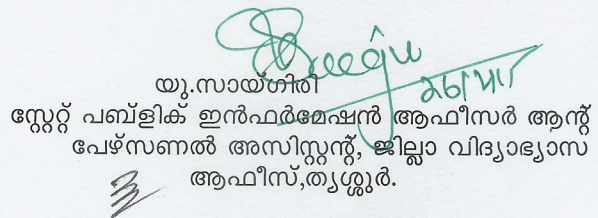 യു.സായ്ഗിരി
സ്റ്റേറ്റ് പബ്ളിക് ഇൻഫർമേഷൻ ആഫീസർ ആന്റ്
പേഴ്സണൽ അസിസ്റ്റന്റ്, ജില്ലാ വിദ്യാഭ്യാസ
ആഫീസ്,തൃശ്ശൂർ.